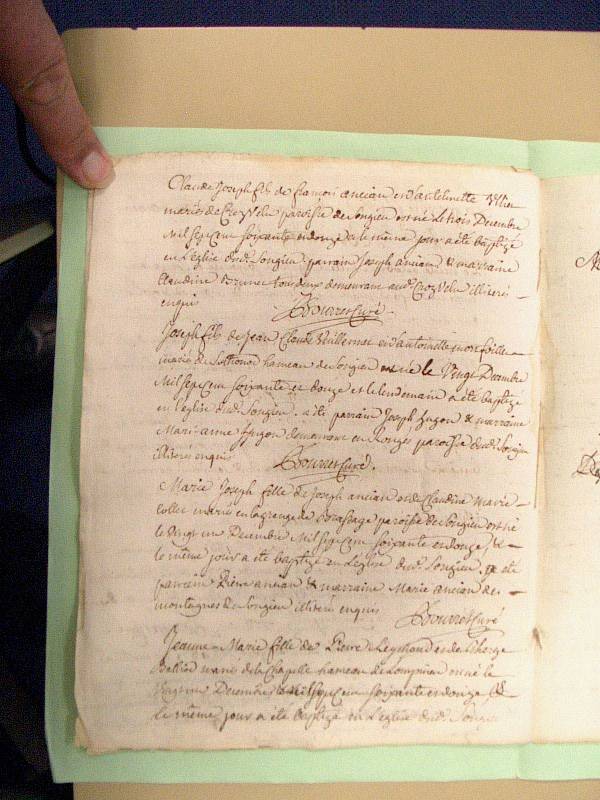 Claude Joseph fils de françois ancian et d'antoinette
mariés de Croz Velu paroisse de Songieu est né le trois Decembre
Mil sept cent soixante et douze et le meme jour a été baptizé
en l'église dud. Songieu. parrain Joseph ancian & marraine
Claudine tous deux demeurans aud. Croz Velu illiteré
enquis Bourret Curé.
Joseph fils de jean Claude Vuillermet et d'antoinette
mariés de Lothonod hameau de Songieu est né le Vingt Decembre
Mil sept cent soixante et douze et le lendemain a été baptizé
en l'église dud. Songieu. a été parrain Joseph Hugon & marraine
Marie anne Hugon demeurans en paroisse dud. Songieu
illiteres enquis Bourret Curé.
Marie Joseph fille de joseph ancian et de Claudine Marie
collet mariés en la grange de paroisse de Songieu est né
le Vingt un Decembre Mil sept cent soixante et douze, & -
le même jour a été baptizé en l'église dud. Songieu, été
parrain Pierre ancian & marraine Marie ancian de -
montagnes de Songieu illiteré enquis Bourret Curé
Jeanne Marie fille de Pierre et de
mariés de la Chapelle hameau de est né le
Vingt un Decembre Mil sept cent soixante et douze, &
le même jour a été baptizé en l'église dud. Songieu